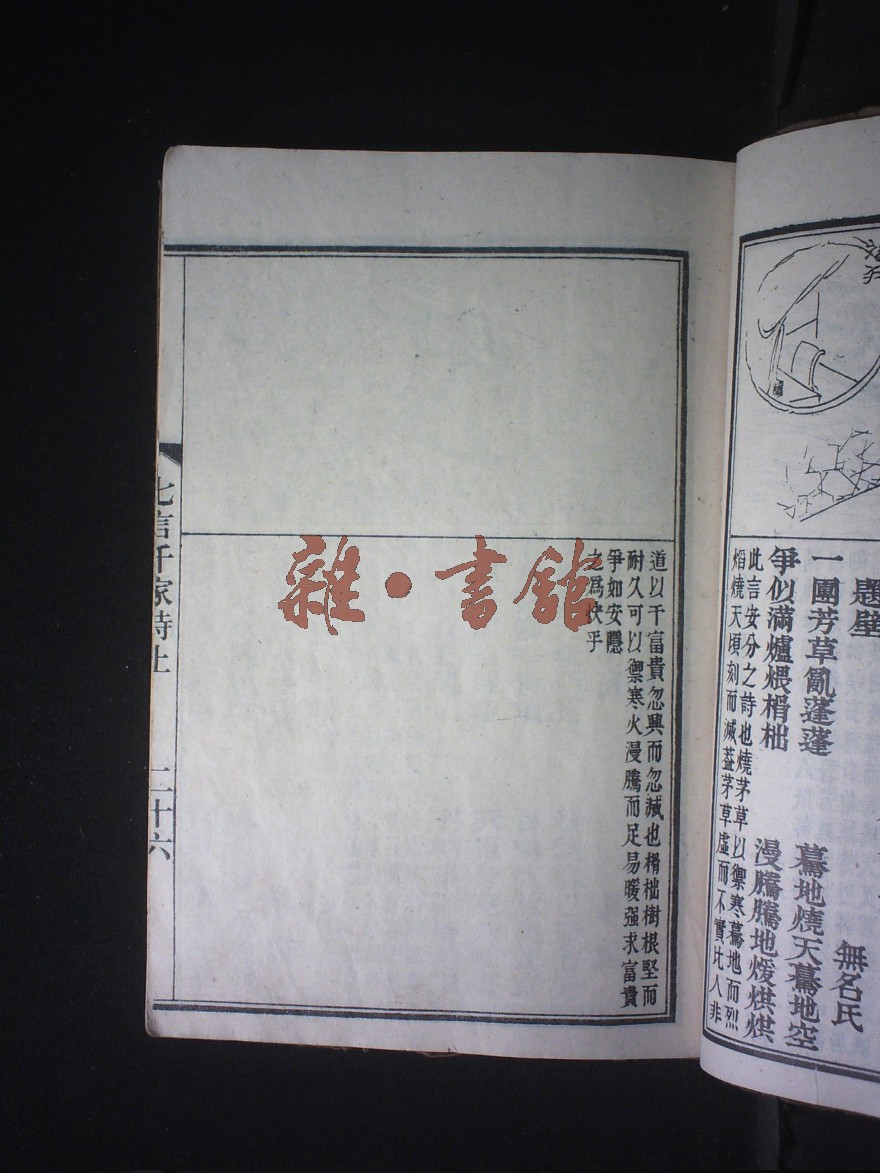 題壁
無名氏
一團芳草亂蓬蓬 驀地燒天驀地空
爭似滿爐煨榾柮 漫騰騰地煖烘烘
此言安分之詩也燒茅草以禦寒驀地而烈
焰燒天頃刻而滅葢茅草虛而不實比人非
道以干富貴忽興而忽滅也榾柮樹根堅而
耐久可以禦寒火漫騰而足易暖强求富貴
爭如安隱
之爲快乎
千家詩上
二十六
雜·書館